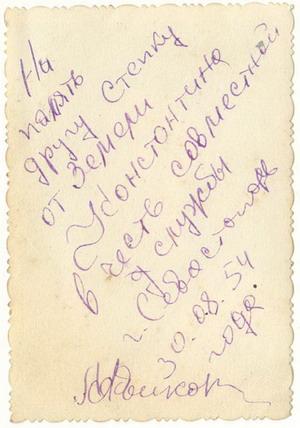 На
память
другу Степку
от Земели
Констонтина
в честь совместной
службы
г. Севастополе
30.08.54
года